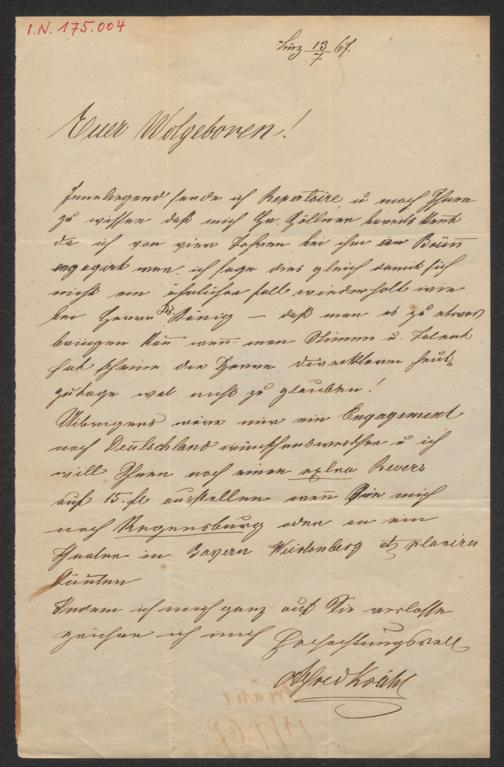 I.N. 175.004
Linz 13/7 67.
Euer Wolgeboren!
Inneliegend sende ich Repertoire u mach Ihnen
zu wissen daß mich Hr. Zöllner bereits kennt
da ich vor vier Jahren bei ihm in Brünn
engagirt war. ich sage dies gleich damit sich
nicht ein ähnlicher Fall wiederholt wie
bei Herrn Dr. König – daß man es zu etwas
bringen kann wenn man Stimme u. Talent
hat scheinen die Herren Direcktoren heut-
zutage wol nicht zu glauben!
Uebrigens wäre mir ein Engagement
nach Deutschland wünschenswerther u ich
will Ihnen noch einen extra Revers
auf 15 fl ausstellen wenn Sie mich
nach Regensburg oder an ein
Theater in Bayern Würtenberg etz placiren
könnten
Indem ich mich ganz auf Sie verlasse
zeichne ich mich Hochachtungsvoll
Alfred